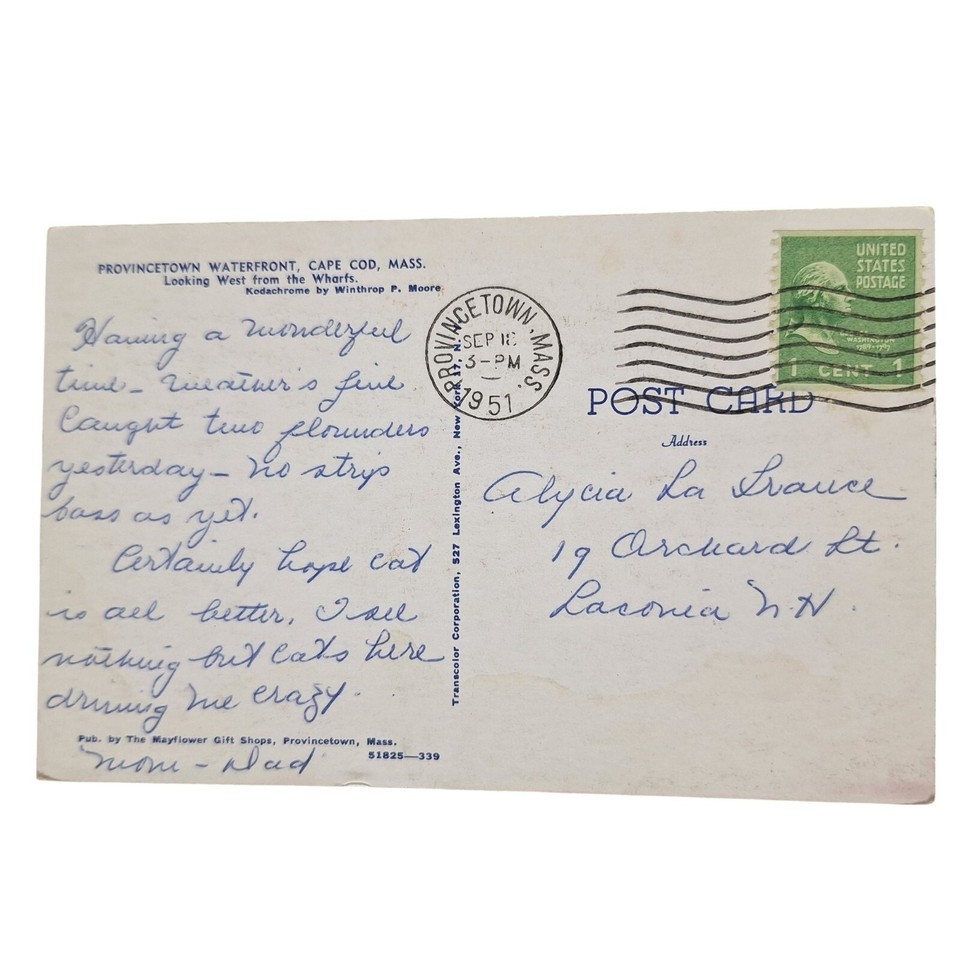 PROVINCETOWN WATERFRONT, CAPE COD, MASS.
Looking West from the Wharfs.
Kodachrome by Winthrop P. Moore
Having a wonderful
time - Weather's fine
Caught two flounders
yesterday - no strip
bass as yet.
Certainly hope cat
is all better, I see
nothing but cats here
driving me crazy.
Pub. by The Mayflower Gift Shops, Provincetown, Mass.
51825—339
Mom - Dad
Transcolor Corporation, 527 Lexington Ave., New York 17, N.Y.
PROVINCETOWN, MASS.
SEP 18
3-PM
1951
UNITED
STATES
POSTAGE
WASHINGTON
1789-1797
1 CENT 1
POST CARD
Address
Alycia La France
19 Orchard St.
Laconia N.H.